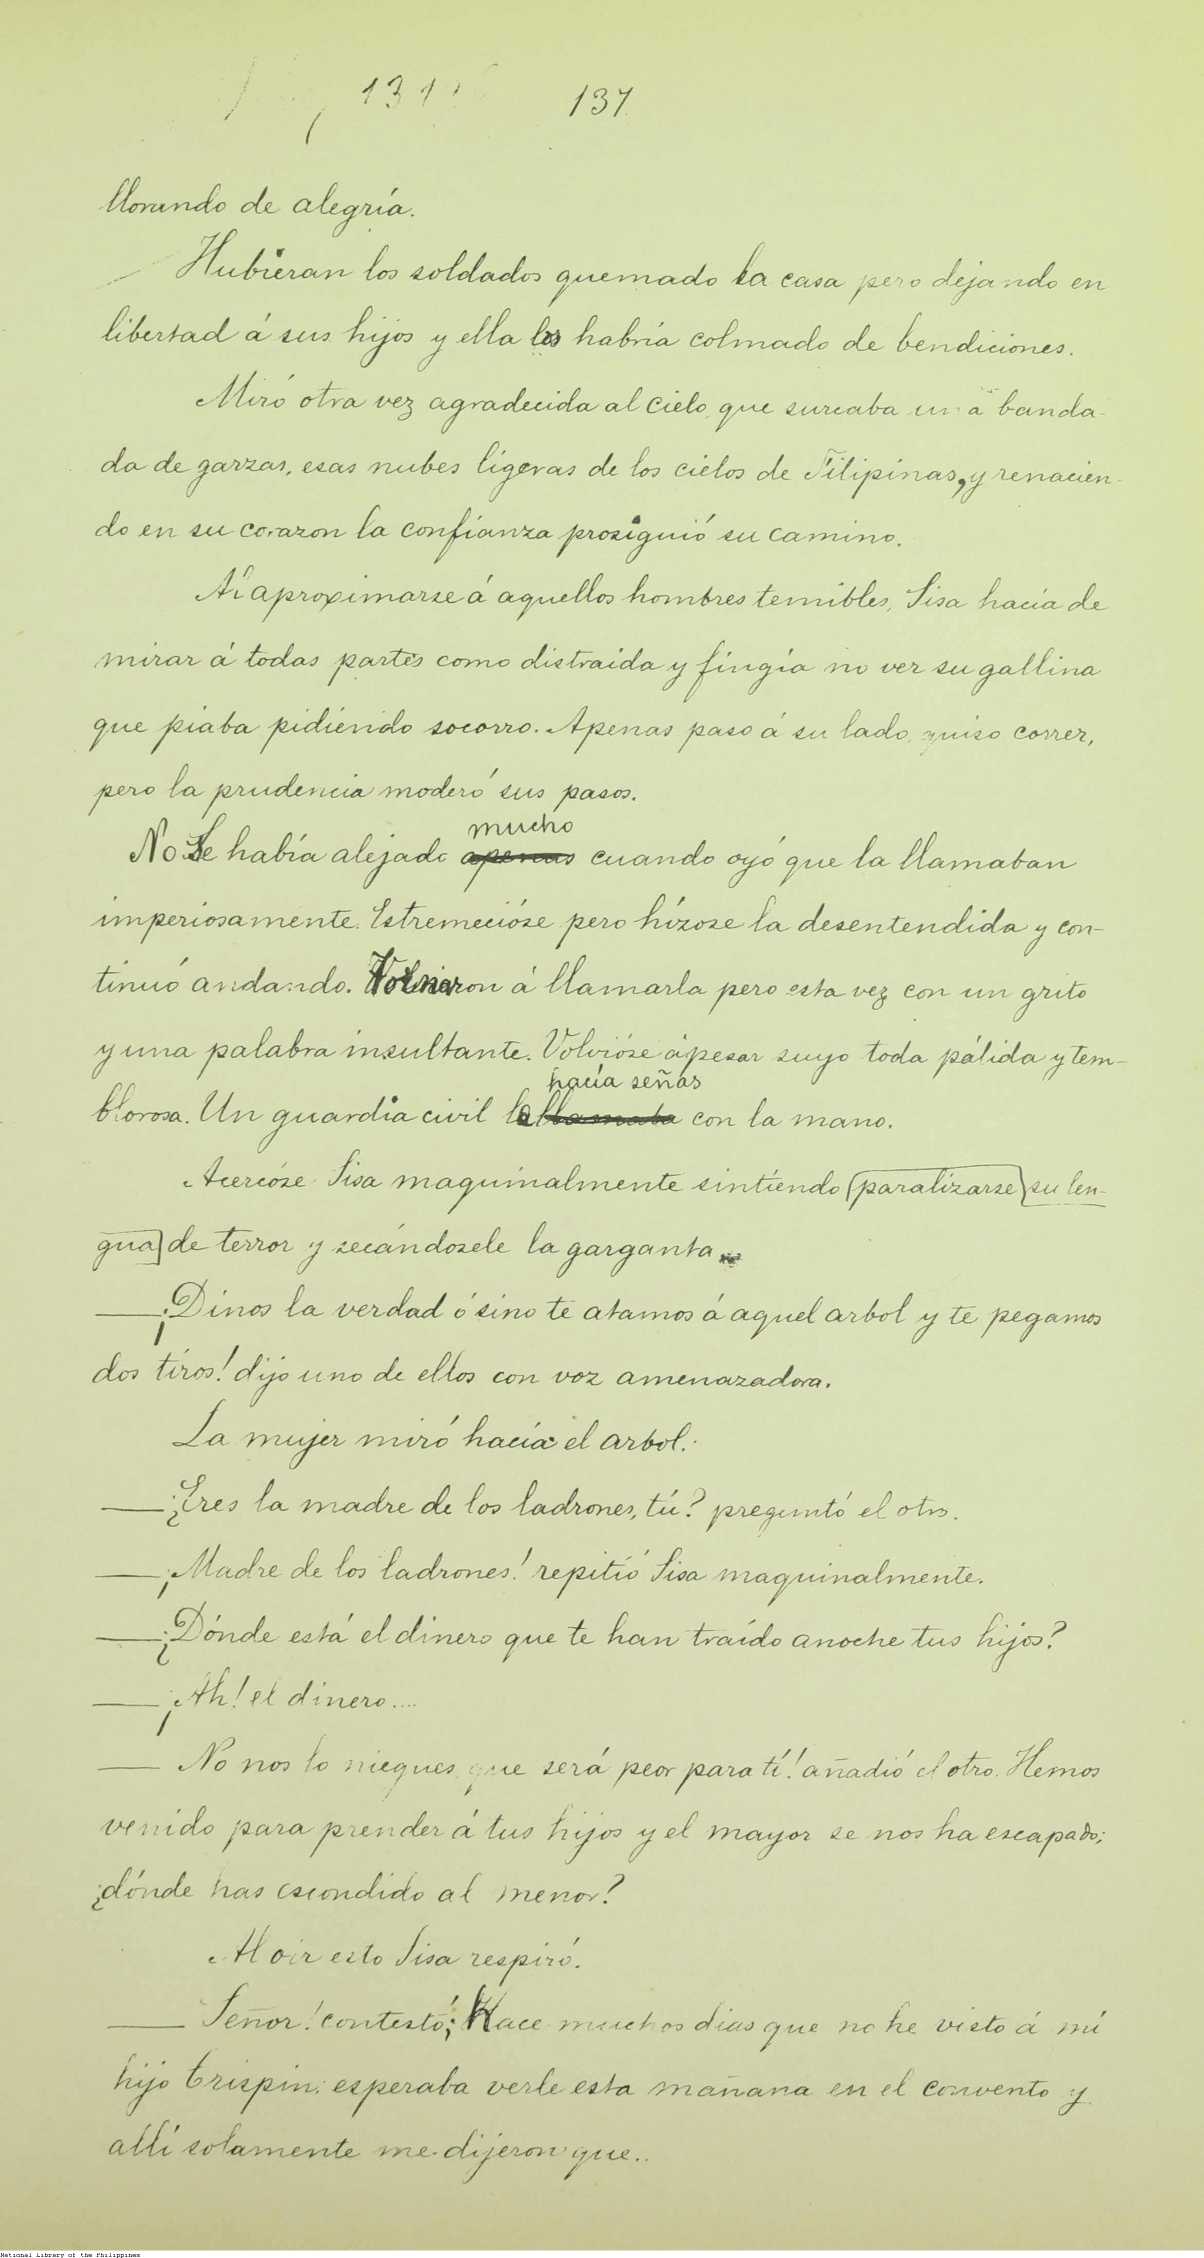 131
137
llorando de alegría.
Hubieran los soldados quemado la casa pero dejando en
libertad á sus hijos y ella los habría colmado de bendiciones.
Miró otra vez agradecida al cielo que surcaba una banda-
da de garzas, esas nubes ligeras de los cielos de Filipinas, y renacien-
do en su corazon la confianza prosiguió su camino.
Al aproximarse á aquellos hombres temibles, Sisa hacia de
mirar á todas partes como distraida y fingía no ver su gallina
que piaba pidiendo socorro. Apenas paso á su lado, quiso correr,
pero la prudencia moderó sus pasos.
mucho
No se había alejado apenas cuando oyó que la llamaban
imperiosamente. Estremecióse pero hízose la desentendida y con-
tinuó andando. Volvieron á llamarla pero esta vez con un grito
y una palabra insultante. Volvióse ápesar suyo toda pálida y tem-
hacía señas
blorosa. Un guardia civil la llamaba con la mano.
Acercóse Sisa maquinalmente sintiendo (paralizarse) su len-
gua] de terror y secándosele la garganta
— ¡Dinos la verdad ó sino te atamos á aquel arbol y te pegamos
dos tiros! dijo uno de ellos con voz amenazadora.
La mujer miró hacia el arbol.
— ¿Eres la madre de los ladrones, tú? preguntó el otro.
— ¡Madre de los ladrones! repitió Sisa maquinalmente.
— ¿Dónde está el dinero que te han traído anoche tus hijos?
— ¡Ah! el dinero....
— No nos lo niegues que será peor para tí! añadió el otro. Hemos
venido para prender á tus hijos y el mayor se nos ha escapado;
¿dónde has escondido al menor?
Al oir esto Sisa respiró.
— Señor! contestó; Hace muchos dias que no he visto á mi
hijo Crispin: esperaba verle esta mañana en el convento y
allí solamente me dijeron que..
National Library of the Philippines